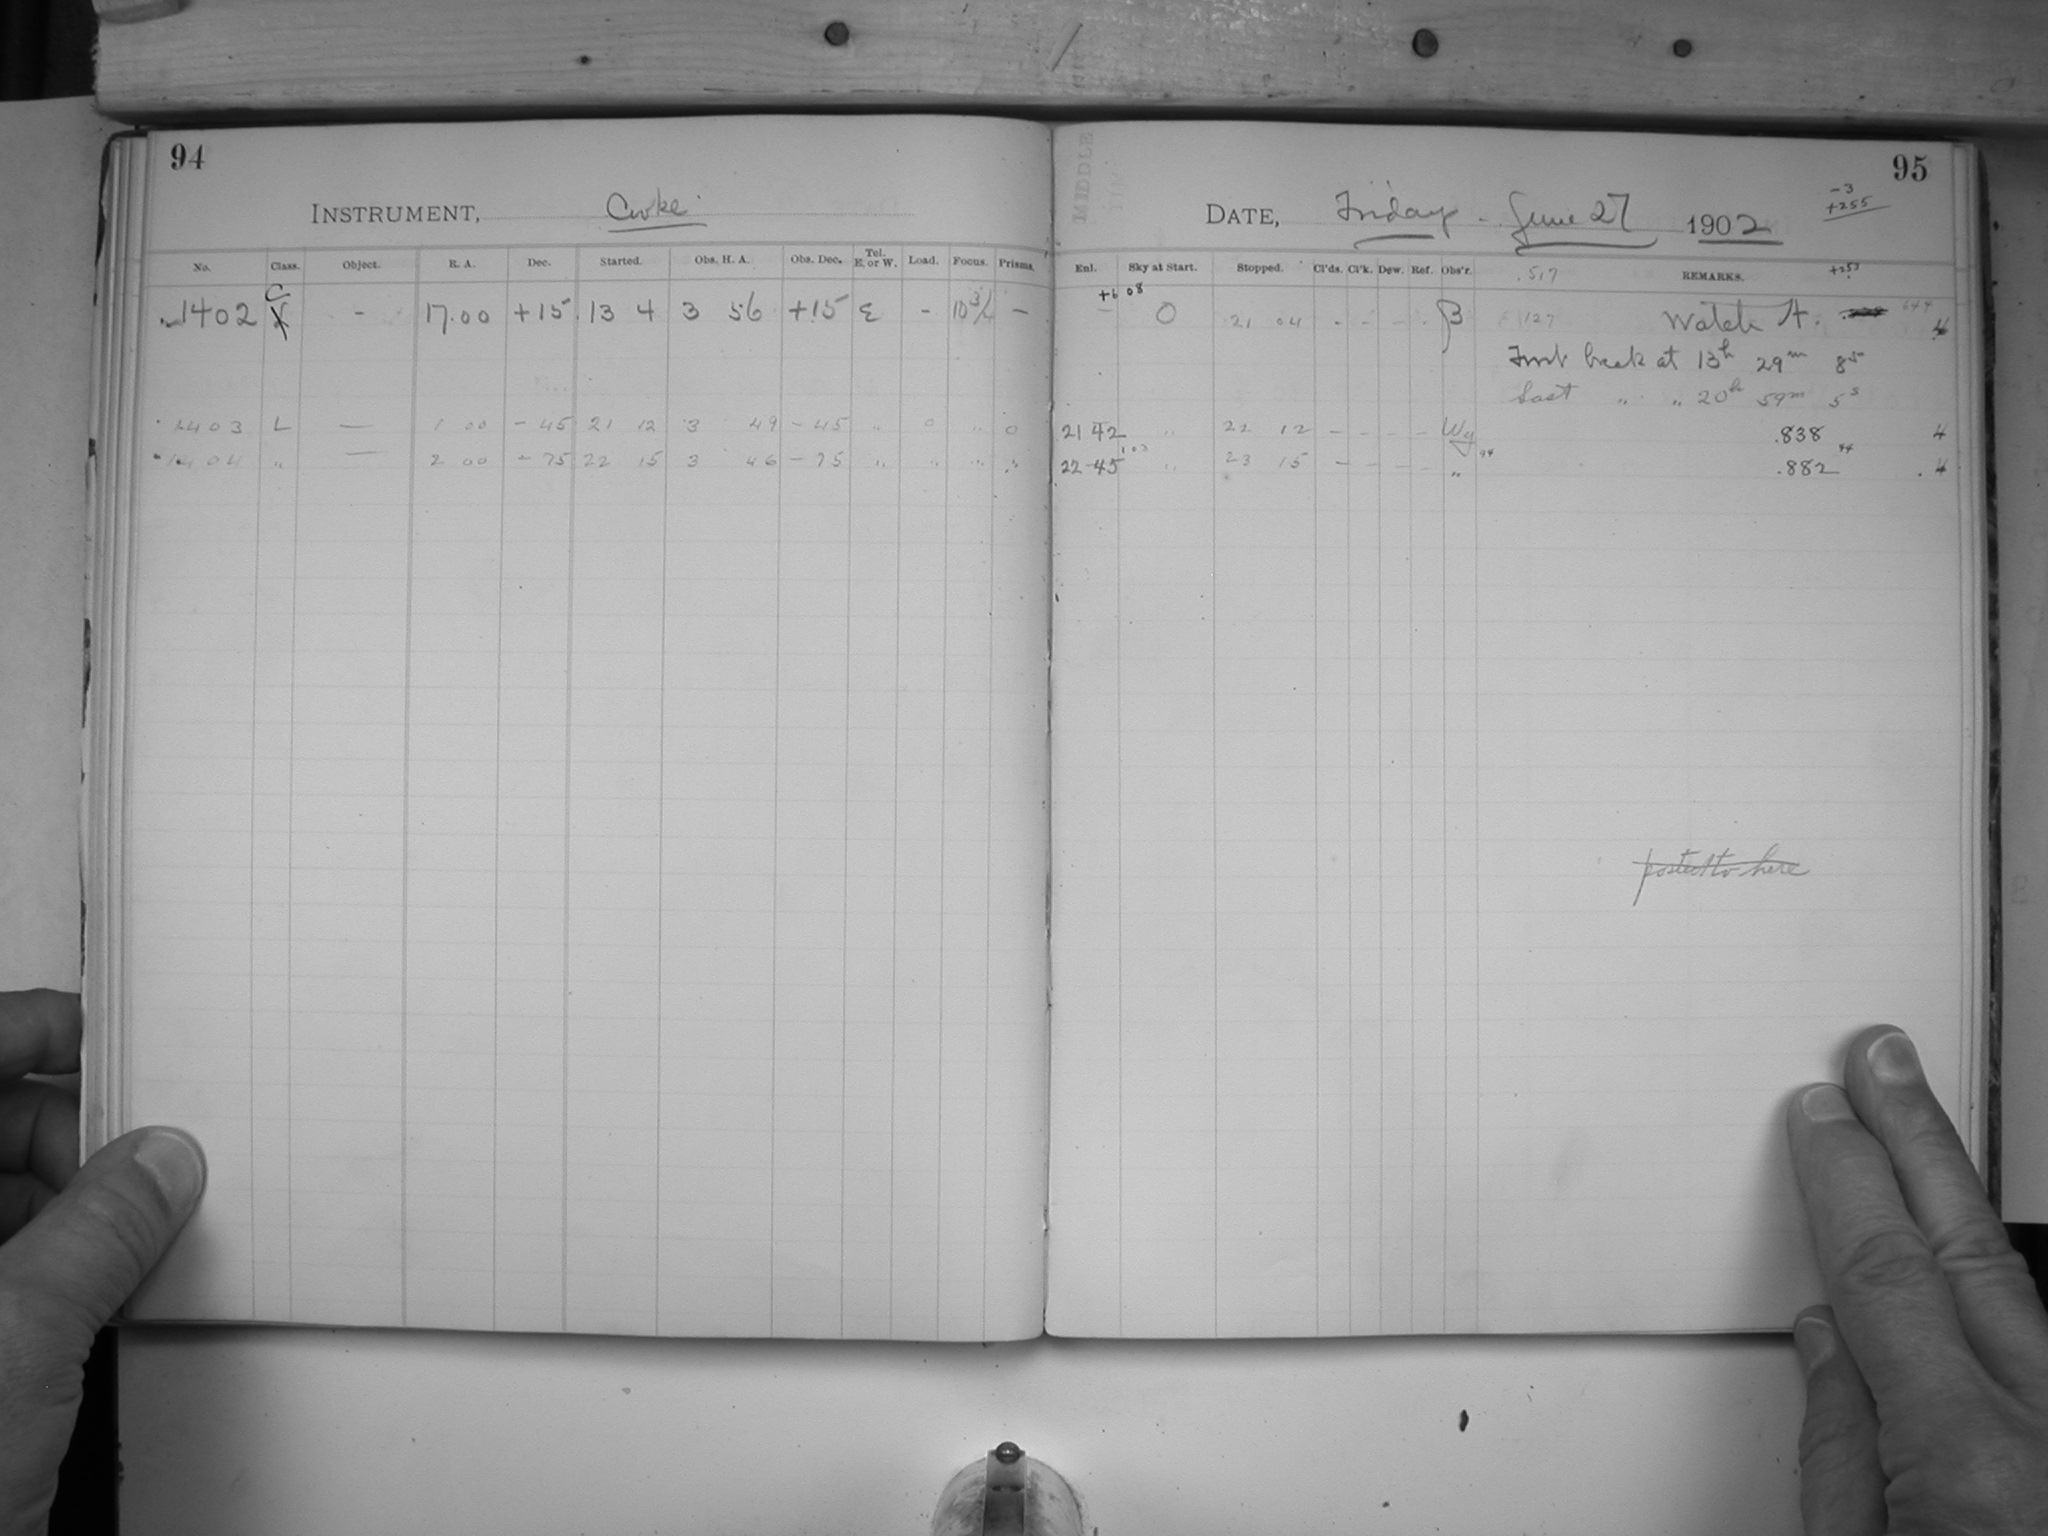 94
INSTRUMENT, Cooke
No. Class. Object. R. A. Dec. Started. Obs. H. A. Obs. Dec. Tel. E. or W. Load. Focus. Prisms.
1402 C - 17.00 +15 13 4 3 56 +15 E - 10 3/4 -
1403 L — 1 00 -45 21 12 3 49 -45 " 0 " 0
1404 " — 2 00 -75 22 15 3 46 -75 " " " "
MIDDLE
95
-3
+255
DATE, Friday - June 27 1902
Enl. Sky at Start. Stopped. Cl'ds. Cl'k. Dew. Ref. Obs'r. .517 REMARKS. +253
+6 08
- 0 21 04 - - - - B 127 Watch A. 644 4
First break at 13h 29m 8s
Last " " 20h 59m 5s
21 42 " 22 12 - - - - Wy .838 4
103 94 44
22 45 " 23 15 - - - - " .882 . 4
posted to here